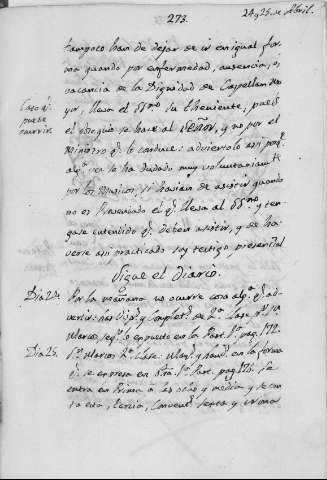 273.
24 y 25 de Abril.
tampoco han de dejar de ir en igual for-
ma quando por enfermedad, ausencia, ó
vacancia de la Dignidad de Capellan Ma
yor, lleva el SSmo su theniente, pues
el obsequio se hace al SEÑOR, y no por el
Ministro q.e lo conduce: adviertolo asi porq.e
alg.a vez se ha dudado muy voluntariam.te
por los Musicos, si havian de asistir quando
no es Presentado el q.e lleva al SSmo y ten-
gase entendido q.e deben asistir, y de ha-
verse asi practicado soy testigo presencial
Caso q.e
puede
ocurrir.
Sigue el Diario.
Dia 24. Por la mañana no ocurre cosa alg.a q.e ad-
vertir: las Visp.s y Complet.s de 2.a Clase
Clasico, seg.n lo expuesto en la Part. 1.a pag. 172.
Dia 25. S.n Marcos, 2.a Clase. en la forma
q.e se expresa en dha 1.a Part. pag. 173. Se
entra en Prima á las ocho y media, y se can-
ta esta, Tercia, Convent.l Sexta y Nona